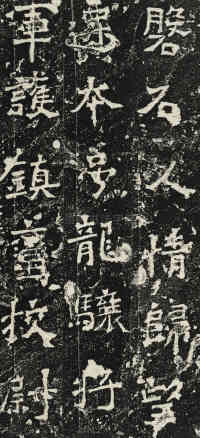 磐石人情歸望
遷本号龍驤將
軍護鎮蠻校尉